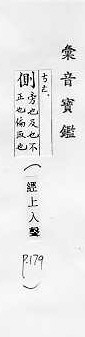 彙音寶鑑
古七.
側 旁也反也不
正也偏仄也
(經上入聲
P.179)